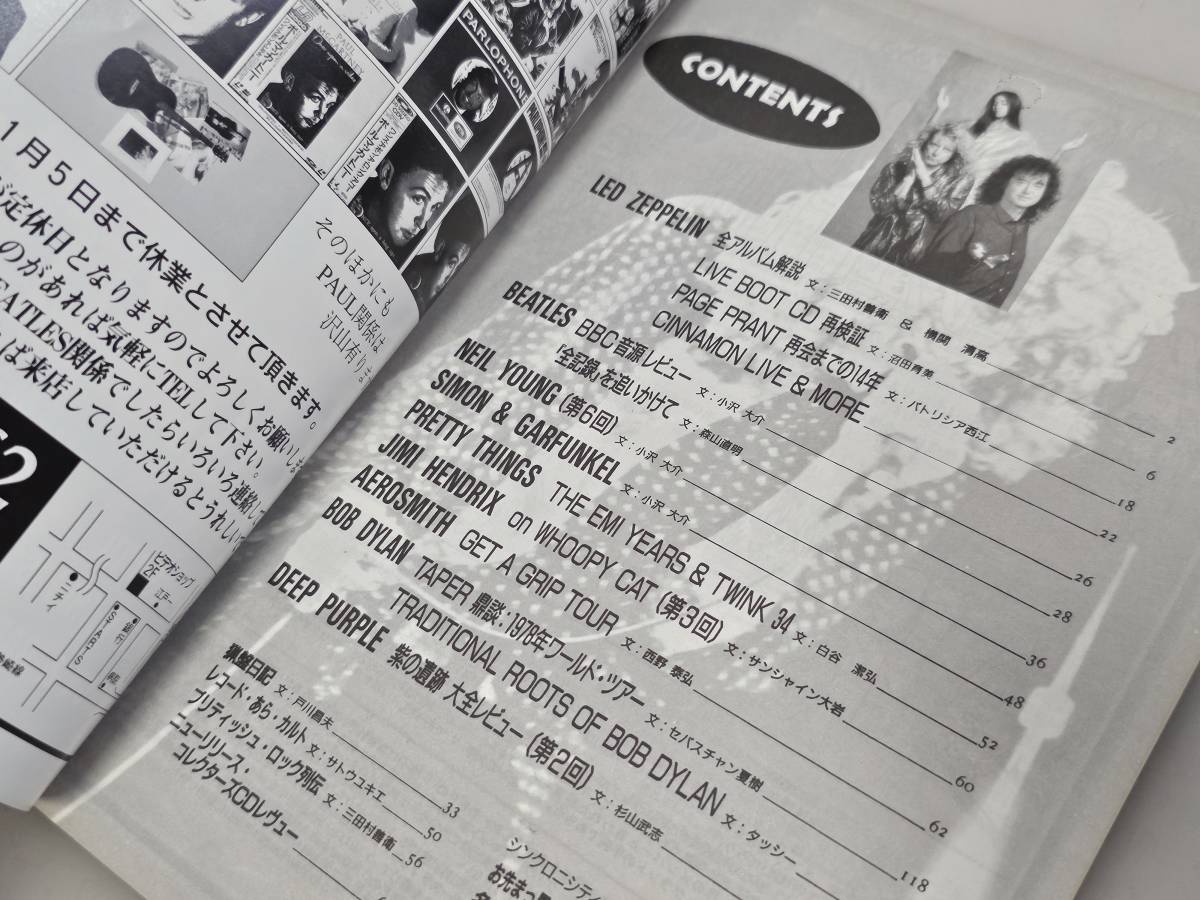 PARLOPHONE
PAUL
McCARTNEY
ポール・マッカートニー
そのほかにも
PAUL関係は
沢山有り
1月5日まで休業とさせて頂きます。
定休日となりますのでよろしくお願いしま
のがあれば気軽にTELして下さい。
EATLES関係でしたらいろいろ連絡し
ば来店していただけるとうれしい
ビデオショップ
2F
STARS
CONTENTS
LED ZEPPELIN 全アルバム解説 文：三田村善衛 & 横関 清高 2
LIVE BOOT CD 再検証 文：沼田育美 6
PAGE PRANT 再会までの14年 文：パトリシア西江 18
CINNAMON LIVE & MORE 22
BEATLES BBC音源レビュー 文：小沢 大介 26
『全記録』を追いかけて 文：森山直明 28
NEIL YOUNG (第6回) 文：小沢 大介 36
SIMON & GARFUNKEL 文：小沢 大介 48
PRETTY THINGS THE EMI YEARS & TWINK 34 文：白谷 潔弘 52
JIMI HENDRIX on WHOOPY CAT (第3回) 文：サンシャイン大岩 60
AEROSMITH GET A GRIP TOUR 文：西野 泰弘 62
BOB DYLAN TAPER 鼎談：1978年ワールド・ツアー 文：セバスチャン夏樹 118
TRADITIONAL ROOTS OF BOB DYLAN 文：タッシー
DEEP PURPLE 紫の遺跡 大全レビュー (第2回) 文：杉山武志
猟盤日記 文：戸川昌夫 33
レコード・あら・カルト 文：サトウユキエ 50
ブリティッシュ・ロック列伝 文：三田村善衛 56
ニューリリース・
コレクターズCDレヴュー
シンクロニシティ
お先まっ